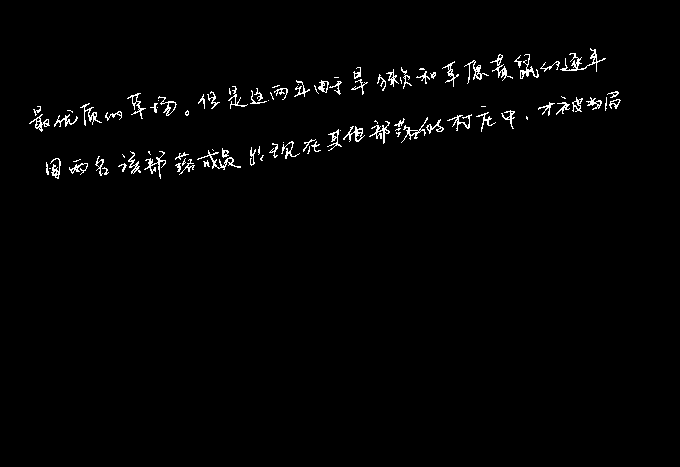 最优质的草场。但是这两年由于旱獭和草原黄鼠的逐年
因两名该部落成员出现在其他部落的村庄中，才被当局